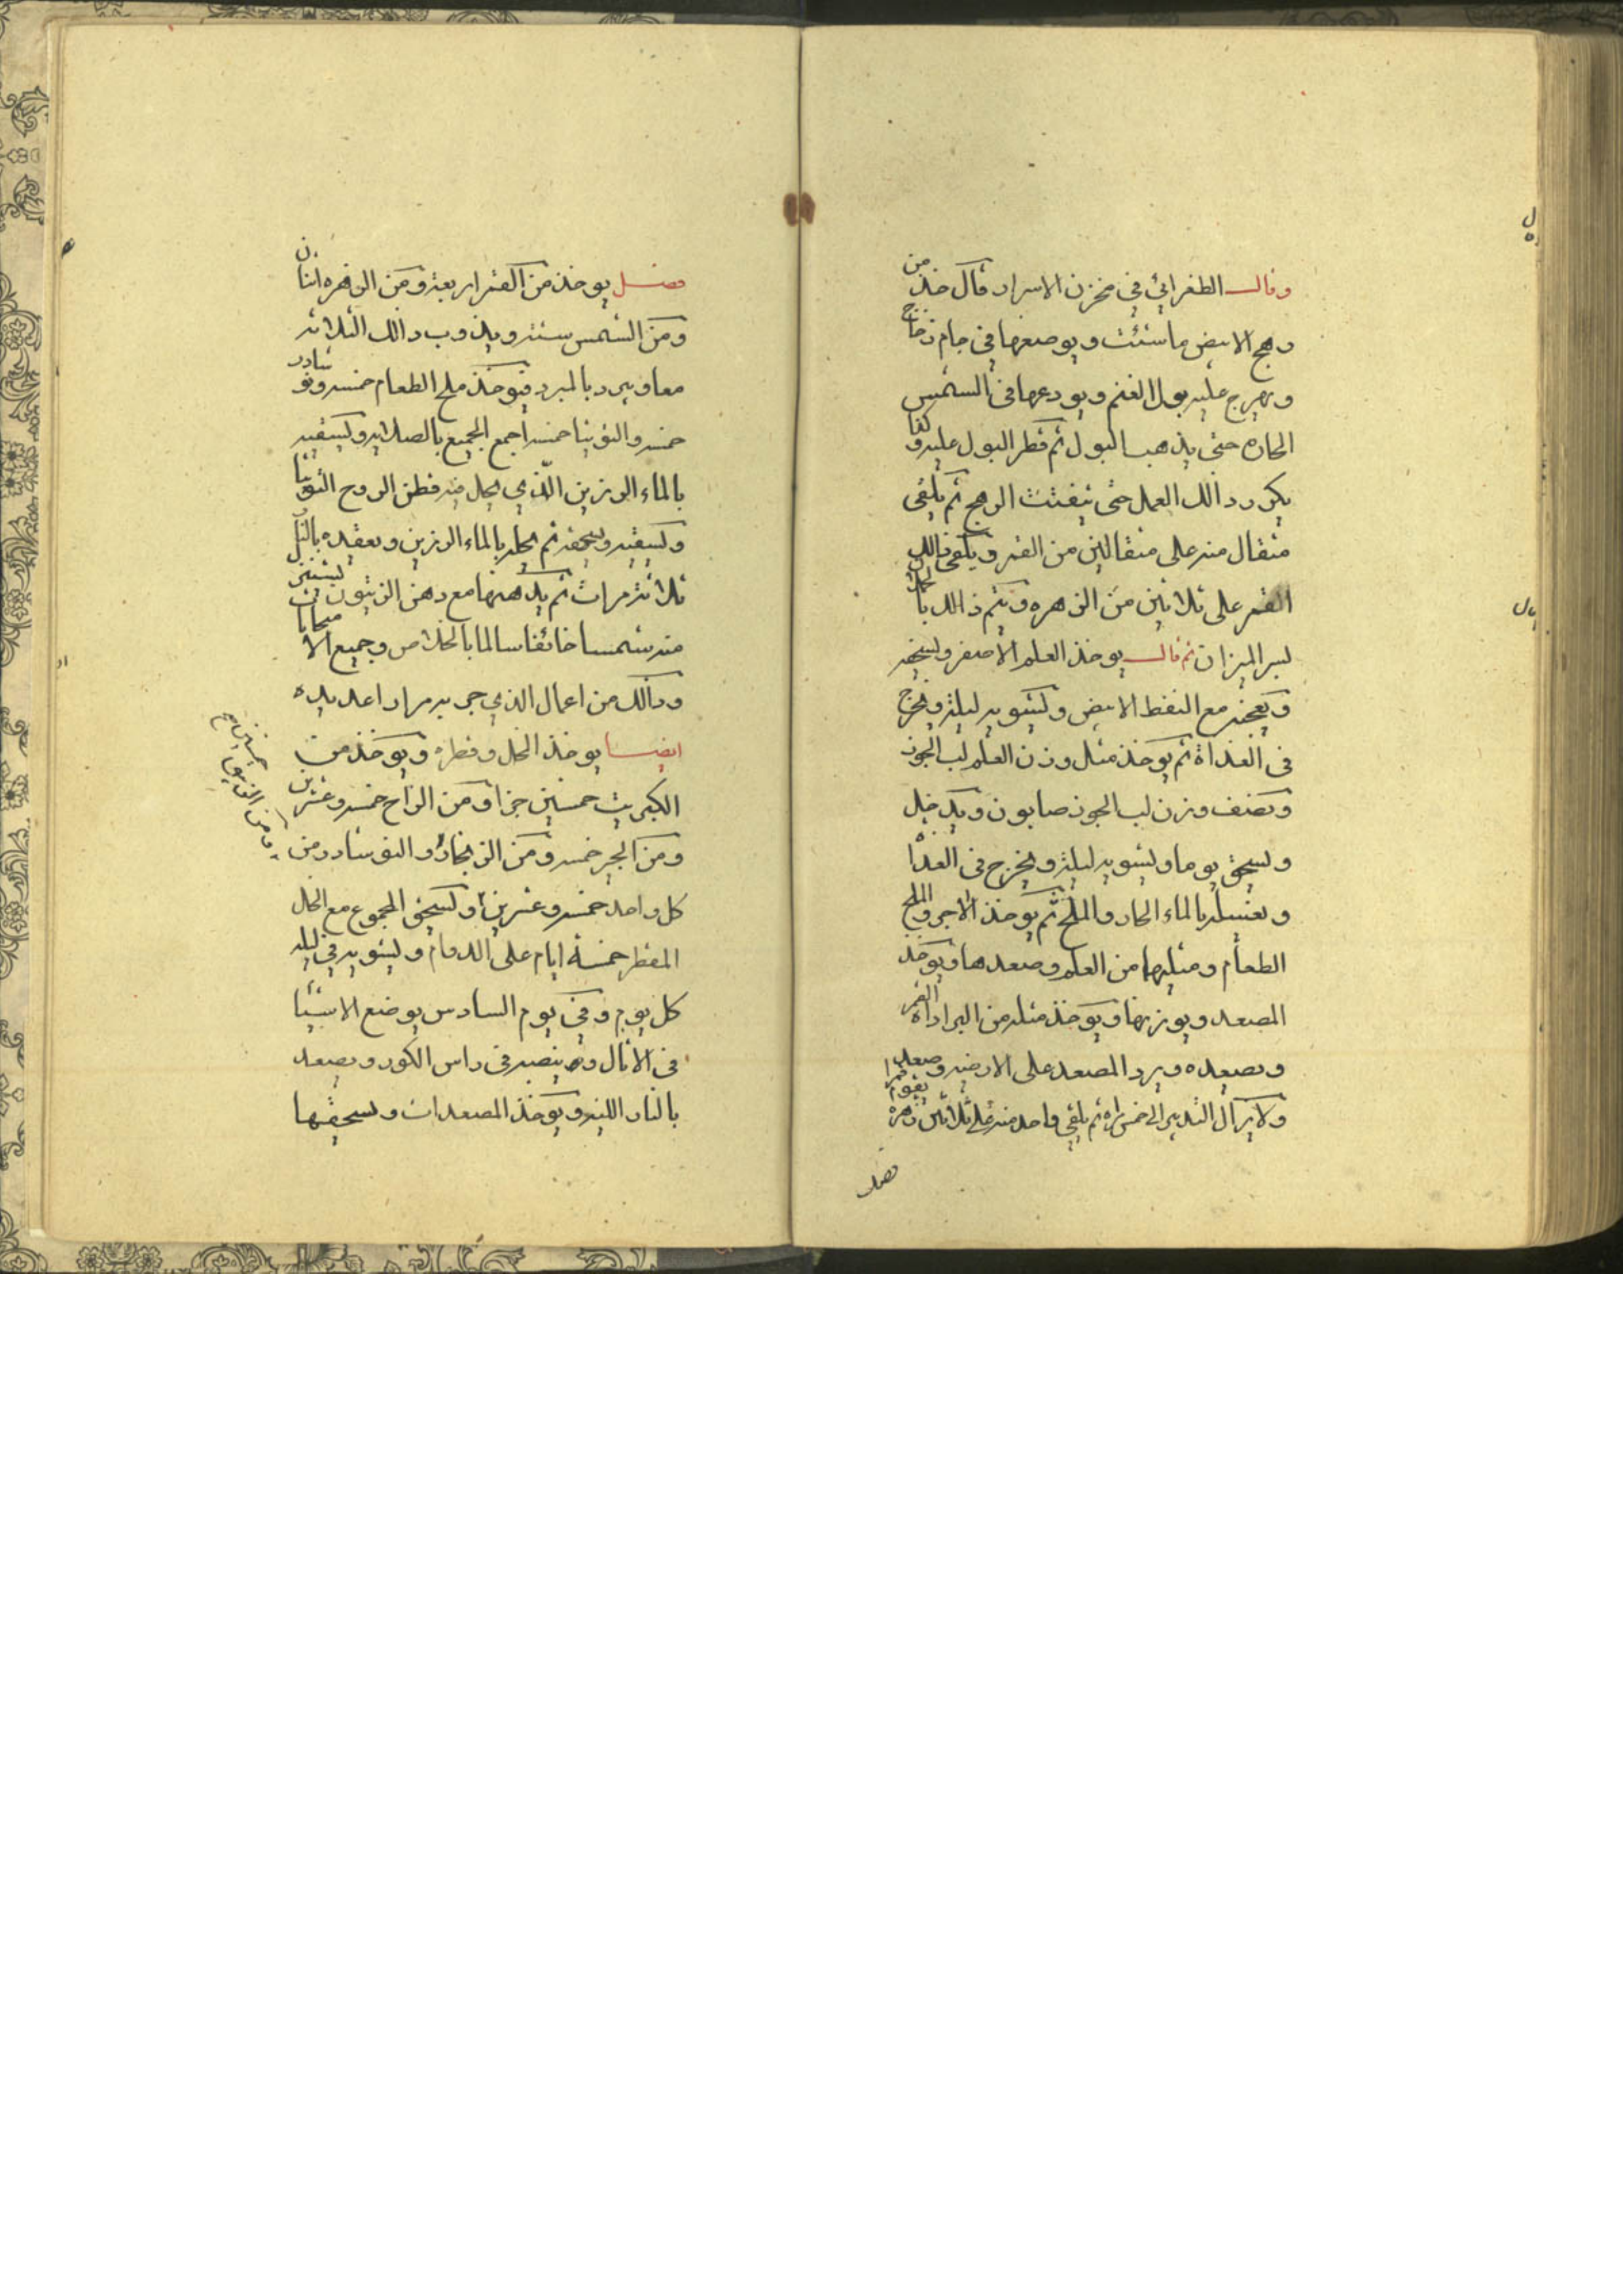 وقال الطغرائي في مخزن الاسرار قال خذ من
رهج الابيض ما شئت ويوضعها في جام زجاج
ويهرج عليه بول الغنم ويودعها في الشمس
الحاره حتى يذهب البول ثم قطر البول عليه وكذا
يكرر دالك العمل حتى يتفتت الرهج ثم يلقى
مثقال منه على مثقالين من القمر ويلقى ذالك
القمر على ثلاثين من الزهره ويتم ذالك با
لسر الميزان ثم قال يوخذ العلم الاصفر ويسحقه
ويعجنه مع النفط الابيض ويشويه ليلة ويخرج
في الغداة ثم يوخذ مثل وزن العلم لب الجوز
ونصف وزن لب الجوز صابون ويدخل
ويسحق يوما ويشويه ليلة ويخرج في الغداة
ويغسله بالماء الحار والملح ثم يوخذ الاجر والملح
الطعام ومثلهما من العلم وصعدها ويوخذ
المصعد ويوزنها ويوخذ مثله من البراداة القمر
ويصعده ويرد المصعد على الارضيه وصعد
ولا يزال التدبير الى خمس مراه ثم يلقى واحد منه على ثلاثين زهره يقوم قمرا
فصل
فصل يوخذ من القمر اربعة ومن الزهره اثنان
ومن الشمس ستة ويذوب دالك الثلاثه
معا ويبرد بالمبرد فيوخذ ملح الطعام خمسه ونوشادر
خمسه والتوتيا خمسه اجمع الجميع بالصلايه ويسقيه
بالماء الرزين الذي يحل فيه قطن الروح التوتيا
ويسقيه ويسحقه ثم يحله بالماء الرزين ويعقده بالنار
ثلاثة مرات ثم يدهنها مع دهن الزيتون يستنزل
منه شمسا خائفا سالما بالخلاص وجميع الامتحانات
ودالك من اعمال الذي جربه مرارا عديده
ايضا يوخذ الخل وقطره ويوخذ من
الكبريت خمسين جزا ومن الزاج خمسه وعشرين
ومن الجير خمسه ومن الزنجار والنوشادر من
كل واحد خمسه وعشرين ويسحق المجموع مع الخل
المقطر خمسة ايام على الدوام ويشويه في ليله
كل يوم وفي يوم السادس يوضع الاشيا
في الاثال وينصبه في راس الكور ويصعد
بالنار اللينه ويوخذ المصعدات ويسحقها
ومن الزيبق خمسين